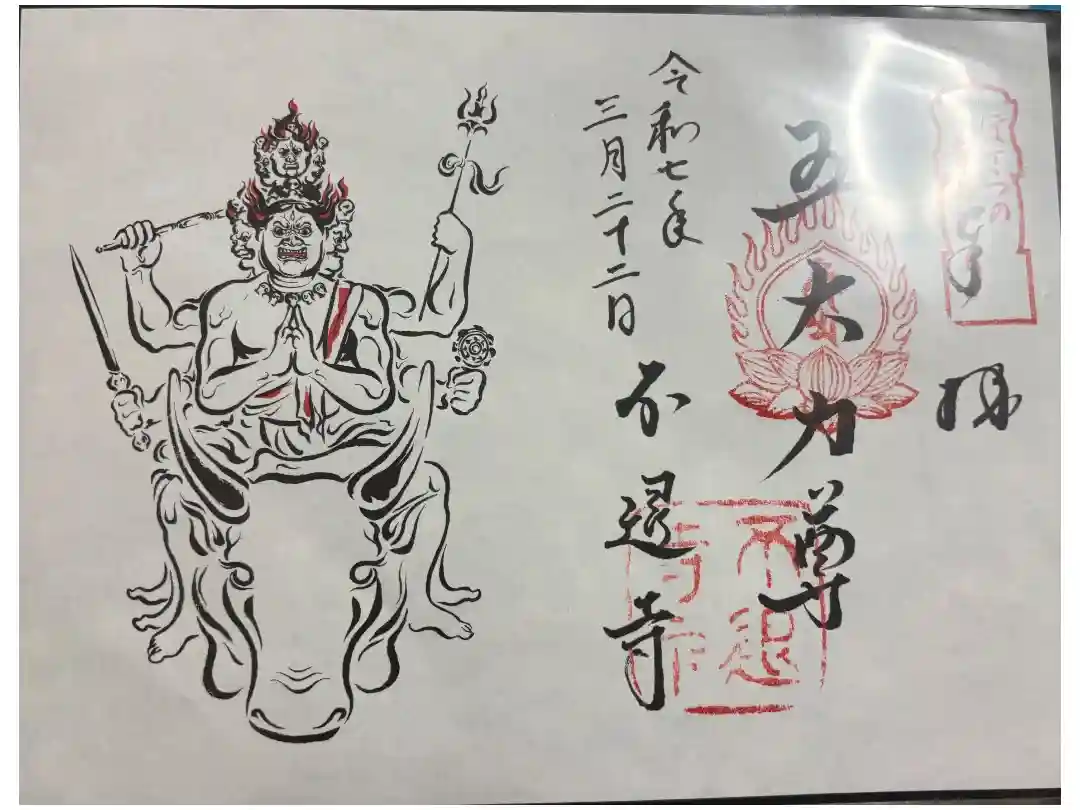 奉拝
五大力尊
令和七年
三月二十二日
不退寺
不退
寺印